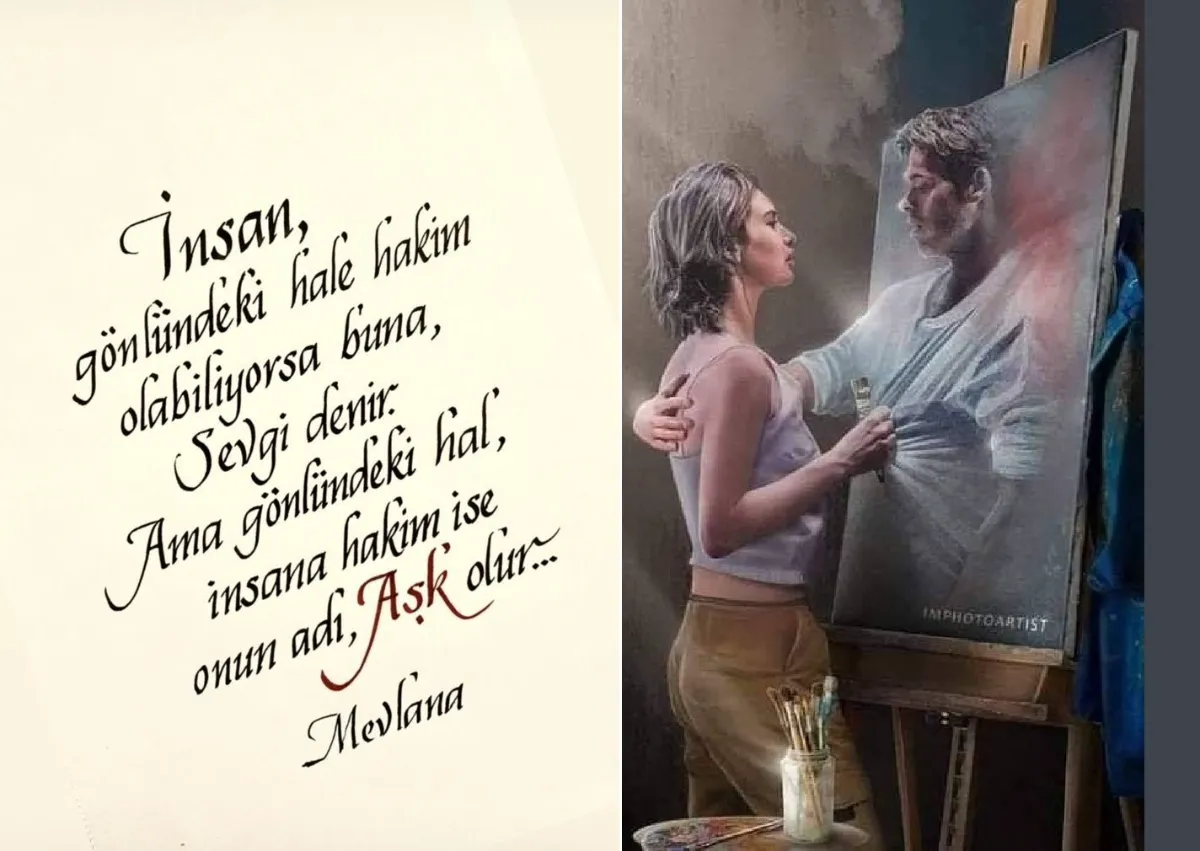 İnsan,
gönlündeki hale hakim
olabiliyorsa buna,
Sevgi denir.
Ama gönlündeki hal,
insana hakim ise
onun adı, Aşk olur...
Mevlana
IMPHOTOARTIST